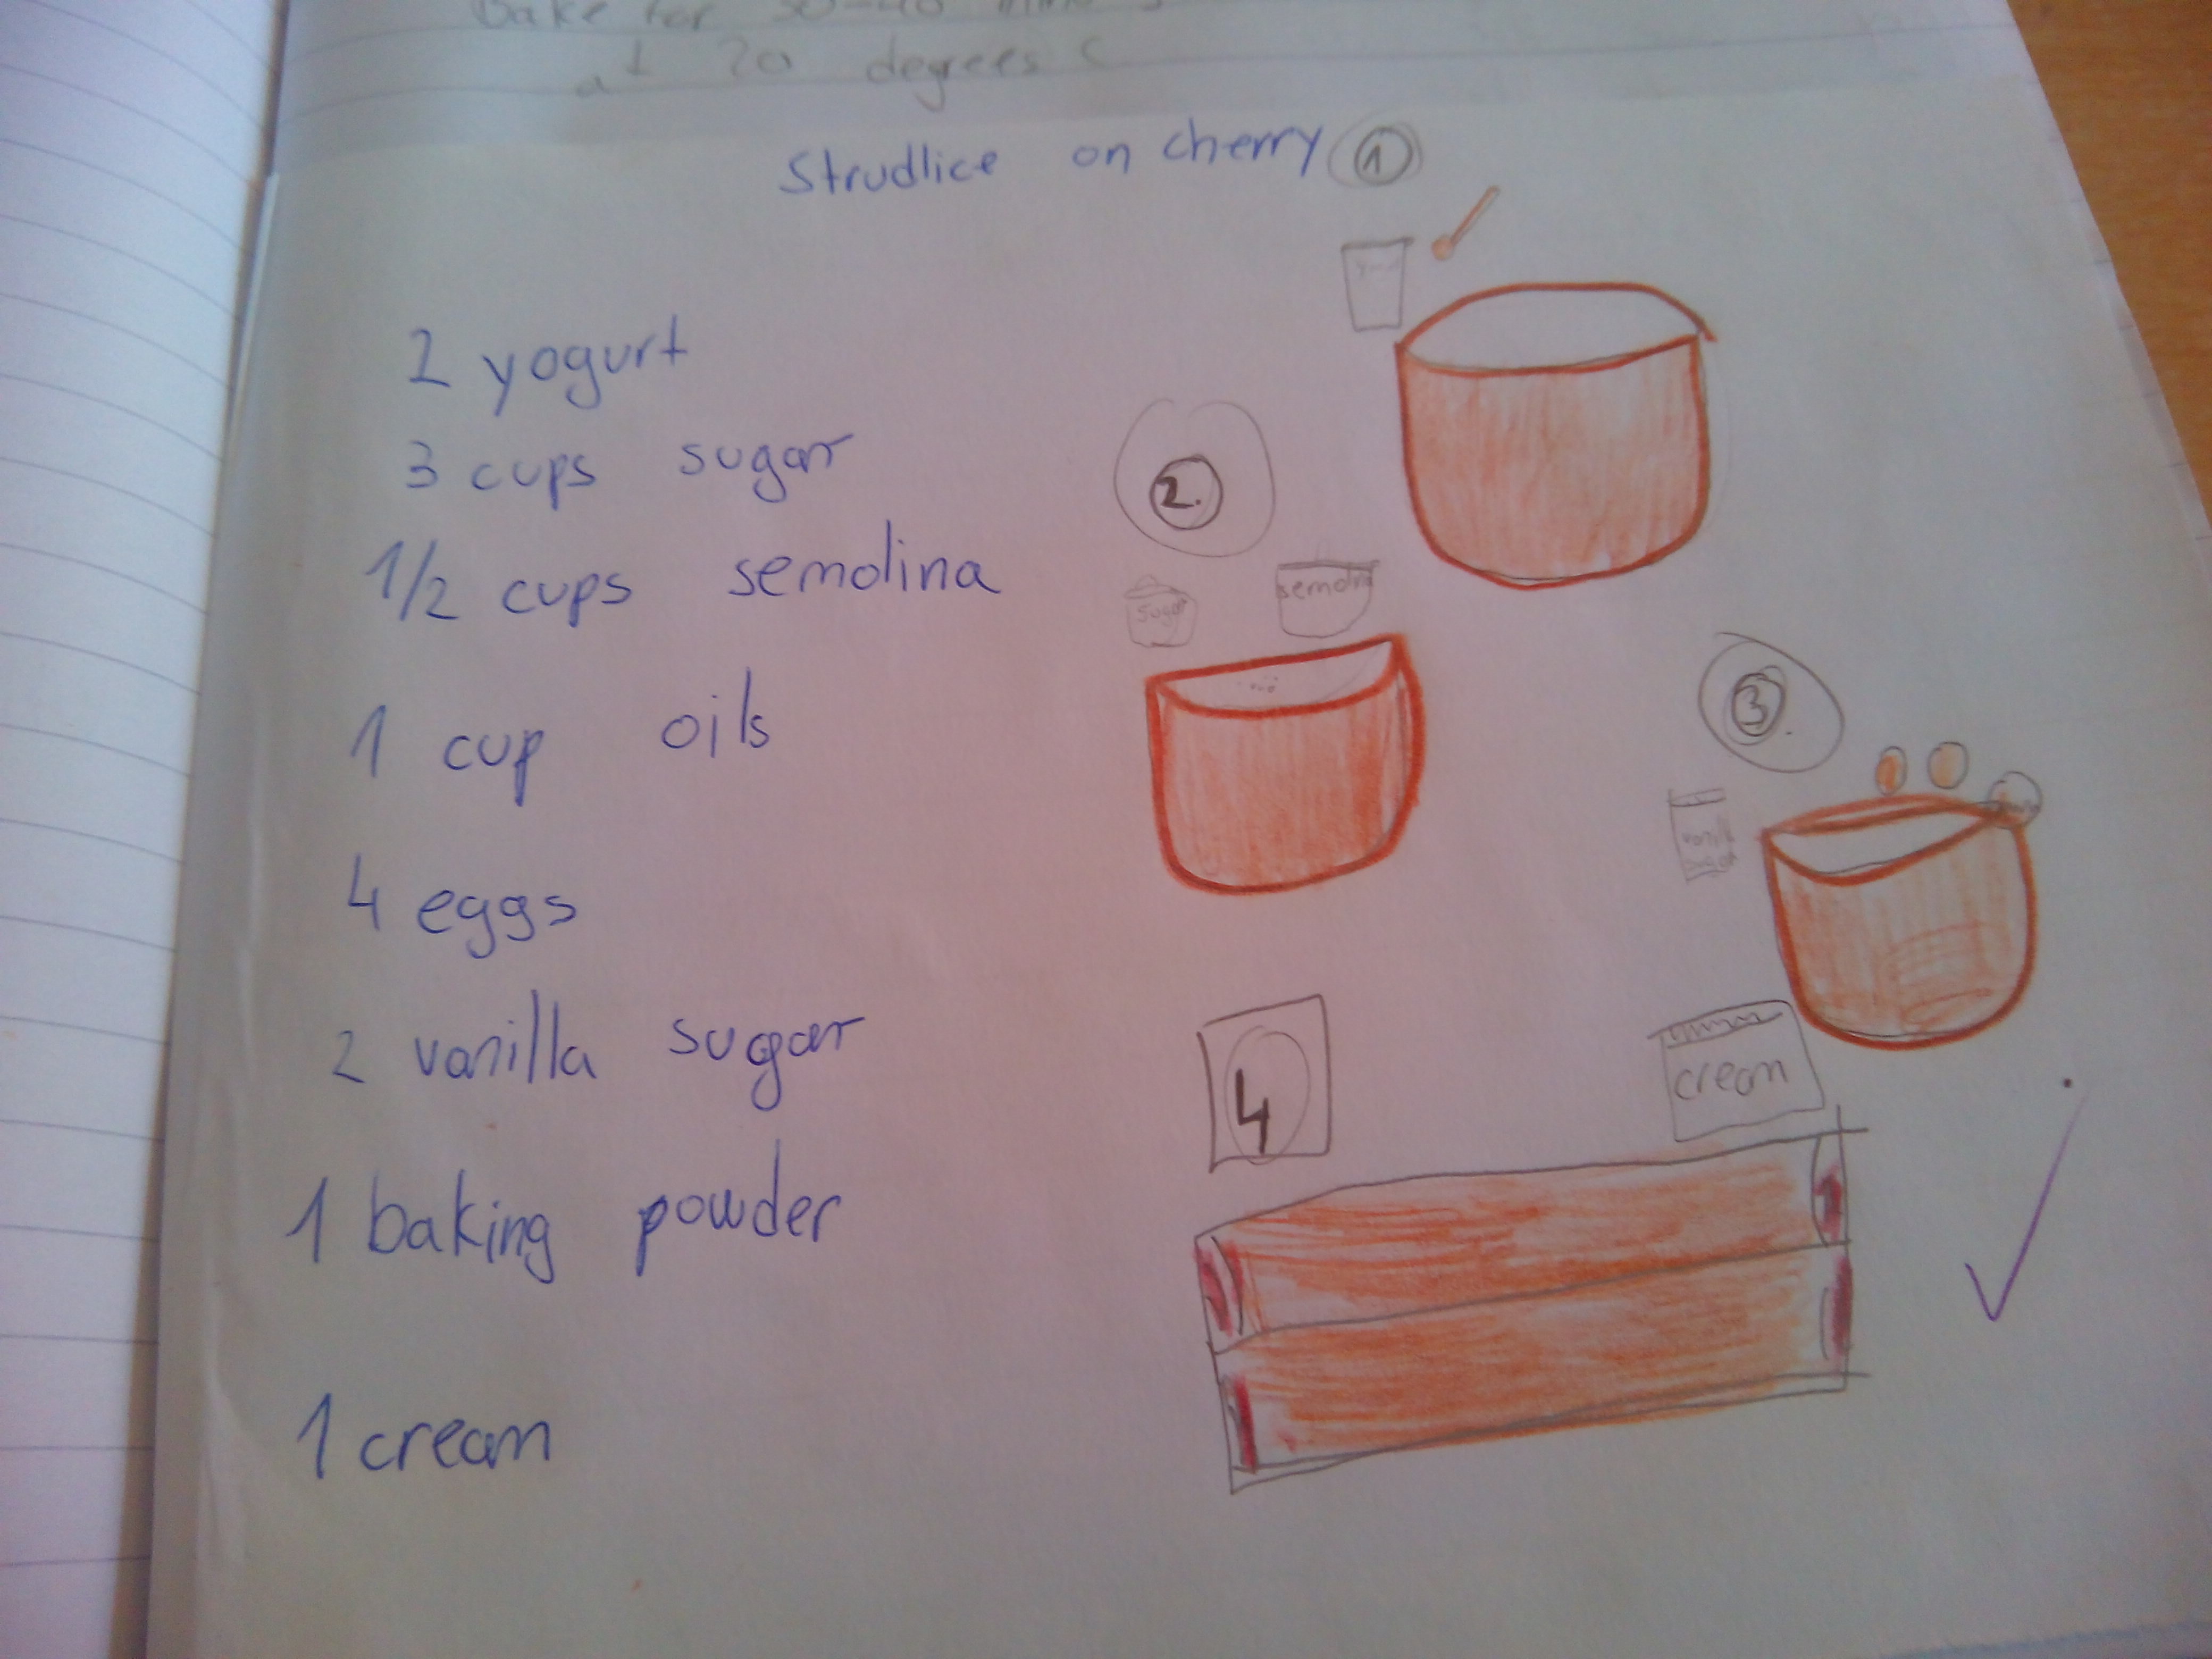 Bake for 30-40 min
at 20 degrees C
Strudlice on cherry 1
2 yogurt
3 cups sugar
2.
1/2 cups semolina
sugar
semolina
3.
1 cup oils
vanilla
sugar
4 eggs
2 vanilla sugar
4
cream
1 baking powder
1 cream